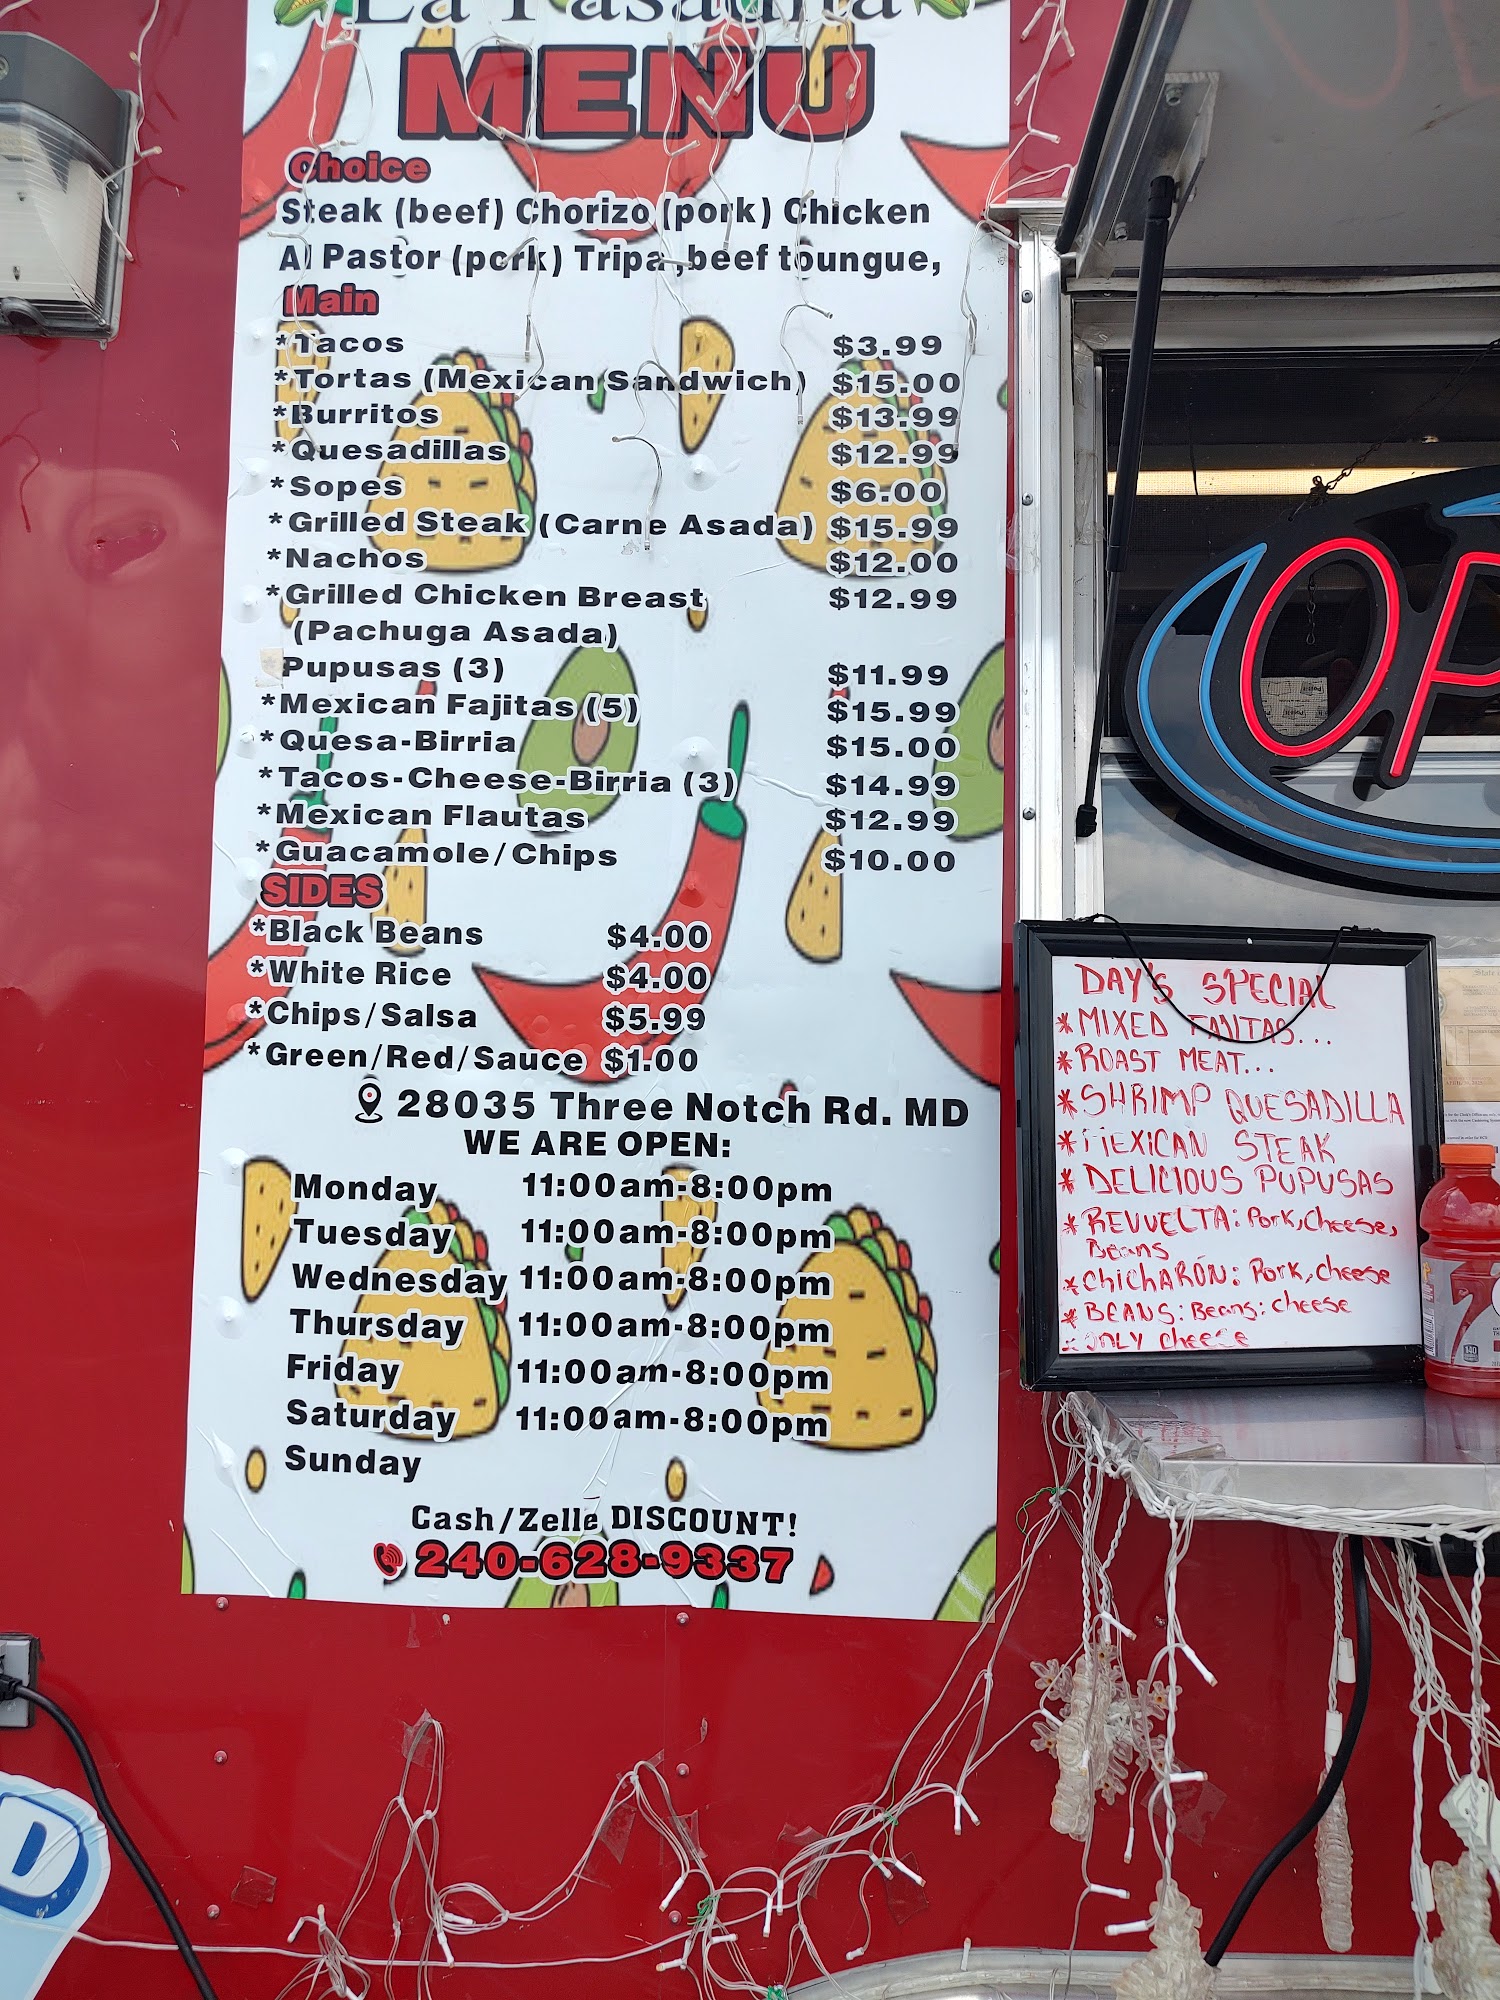 La Pasadita
MENU
Choice
Steak (beef) Chorizo (pork) Chicken
Al Pastor (pork) Tripa ,beef toungue,
Main
*Tacos $3.99
*Tortas (Mexican Sandwich) $15.00
*Burritos $13.99
*Quesadillas $12.99
*Sopes $6.00
*Grilled Steak (Carne Asada) $15.99
*Nachos $12.00
*Grilled Chicken Breast $12.99
(Pachuga Asada)
Pupusas (3) $11.99
*Mexican Fajitas (5) $15.99
*Quesa-Birria $15.00
*Tacos-Cheese-Birria (3) $14.99
*Mexican Flautas $12.99
*Guacamole/Chips $10.00
SIDES
*Black Beans $4.00
*White Rice $4.00
*Chips/Salsa $5.99
*Green/Red/Sauce $1.00
28035 Three Notch Rd. MD
WE ARE OPEN:
Monday 11:00am-8:00pm
Tuesday 11:00am-8:00pm
Wednesday 11:00am-8:00pm
Thursday 11:00am-8:00pm
Friday 11:00am-8:00pm
Saturday 11:00am-8:00pm
Sunday
Cash/Zelle DISCOUNT!
240-628-9337
OP
DAY'S SPECIAL
*MIXED FAJITAS...
*ROAST MEAT...
*SHRIMP QUESADILLA
*MEXICAN STEAK
*DELICIOUS PUPUSAS
*REVUELTA: Pork, Cheese,
Beans
*ChichARÓN: Pork, cheese
*BEANS: Beans: cheese
*ONLY cheese
D